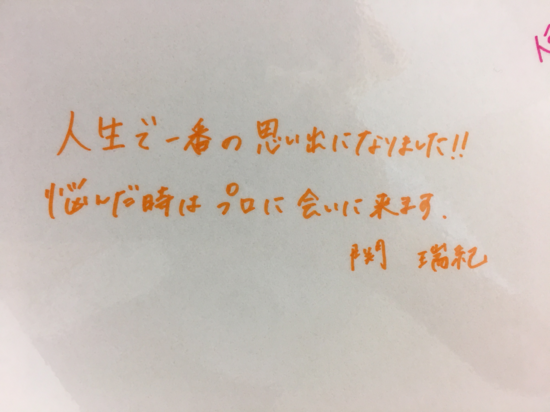 人生で一番の思い出になりました!!
悩んだ時はプロに会いに来ます.
関 瑞紀